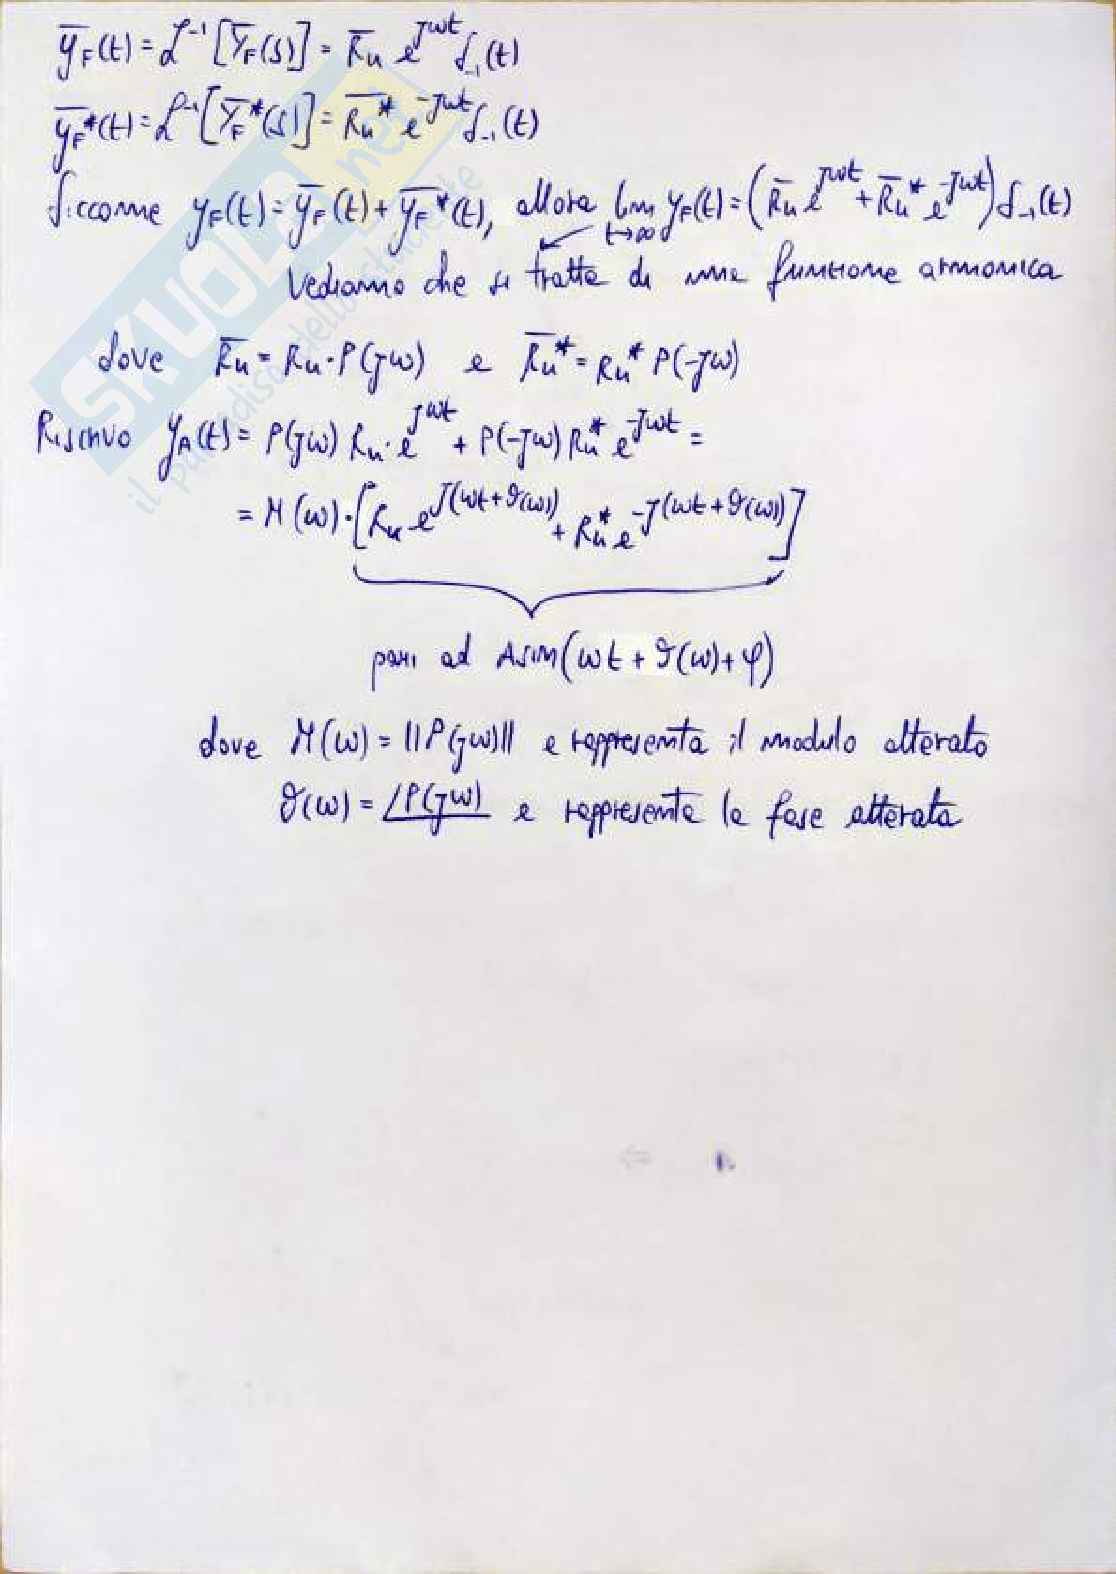 ȳ_F(t) = ℒ⁻¹[Ȳ_F(s)] = R̄u e^{jωt} δ₋₁(t)
ȳ_F*(t) = ℒ⁻¹[Ȳ_F*(s)] = R̄u* e^{-jωt} δ₋₁(t)
Siccome y_F(t) = ȳ_F(t) + ȳ_F*(t), allora lim t→∞ y_F(t) = (R̄u e^{jωt} + R̄u* e^{-jωt}) δ₋₁(t)
Vediamo che si tratta di una funzione armonica
dove R̄u = Ru · P(jω) e R̄u* = Ru* P(-jω)
Riscrivo y_A(t) = P(jω) Ru · e^{jωt} + P(-jω) Ru* e^{-jωt} =
= M(ω) · [Ru e^{j(ωt + ϑ(ω))} + Ru* e^{-j(ωt + ϑ(ω))}]
pari ad Asin(ωt + ϑ(ω) + φ)
dove M(ω) = ||P(jω)|| e rappresenta il modulo alterato
ϑ(ω) = ∠P(jω) e rappresenta la fase alterata
SKUOLA.net
il paradiso dello studente